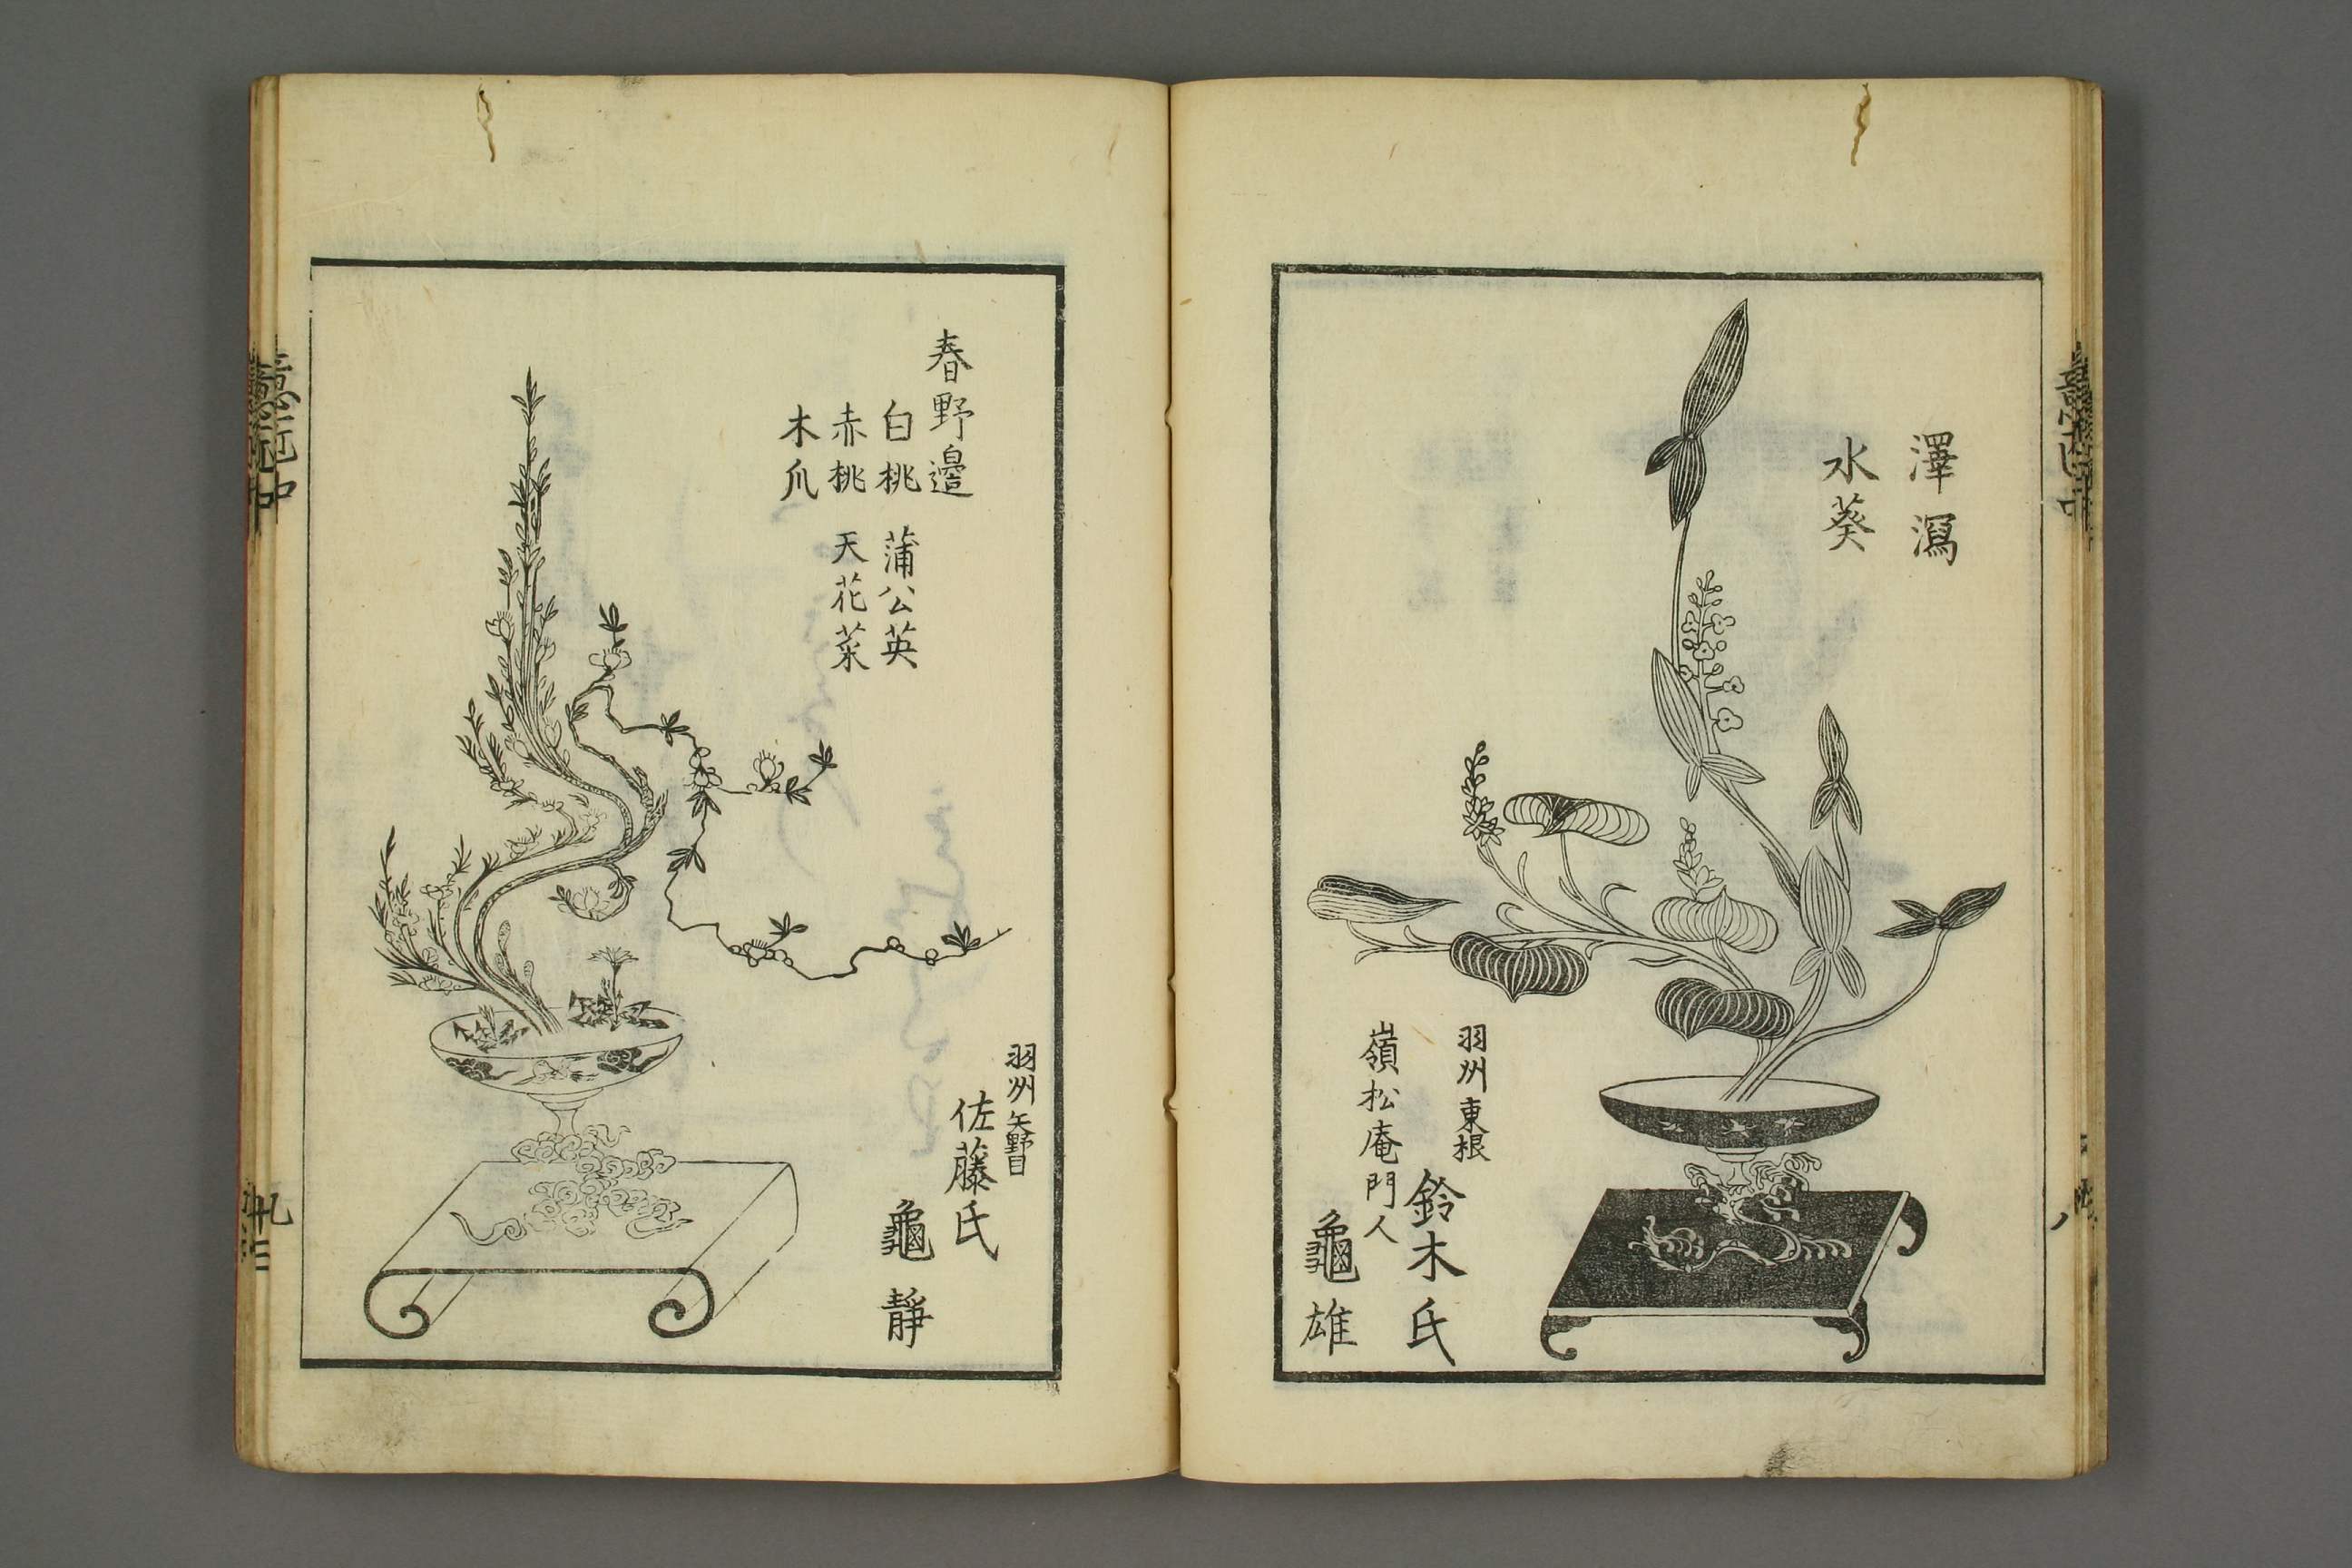 澤瀉
水葵
羽州東根
鈴木氏
嶺松庵門人
龜雄
春野邉
白桃 蒲公英
赤桃 天花菜
木爪
羽州矢野目
佐藤氏
龜靜